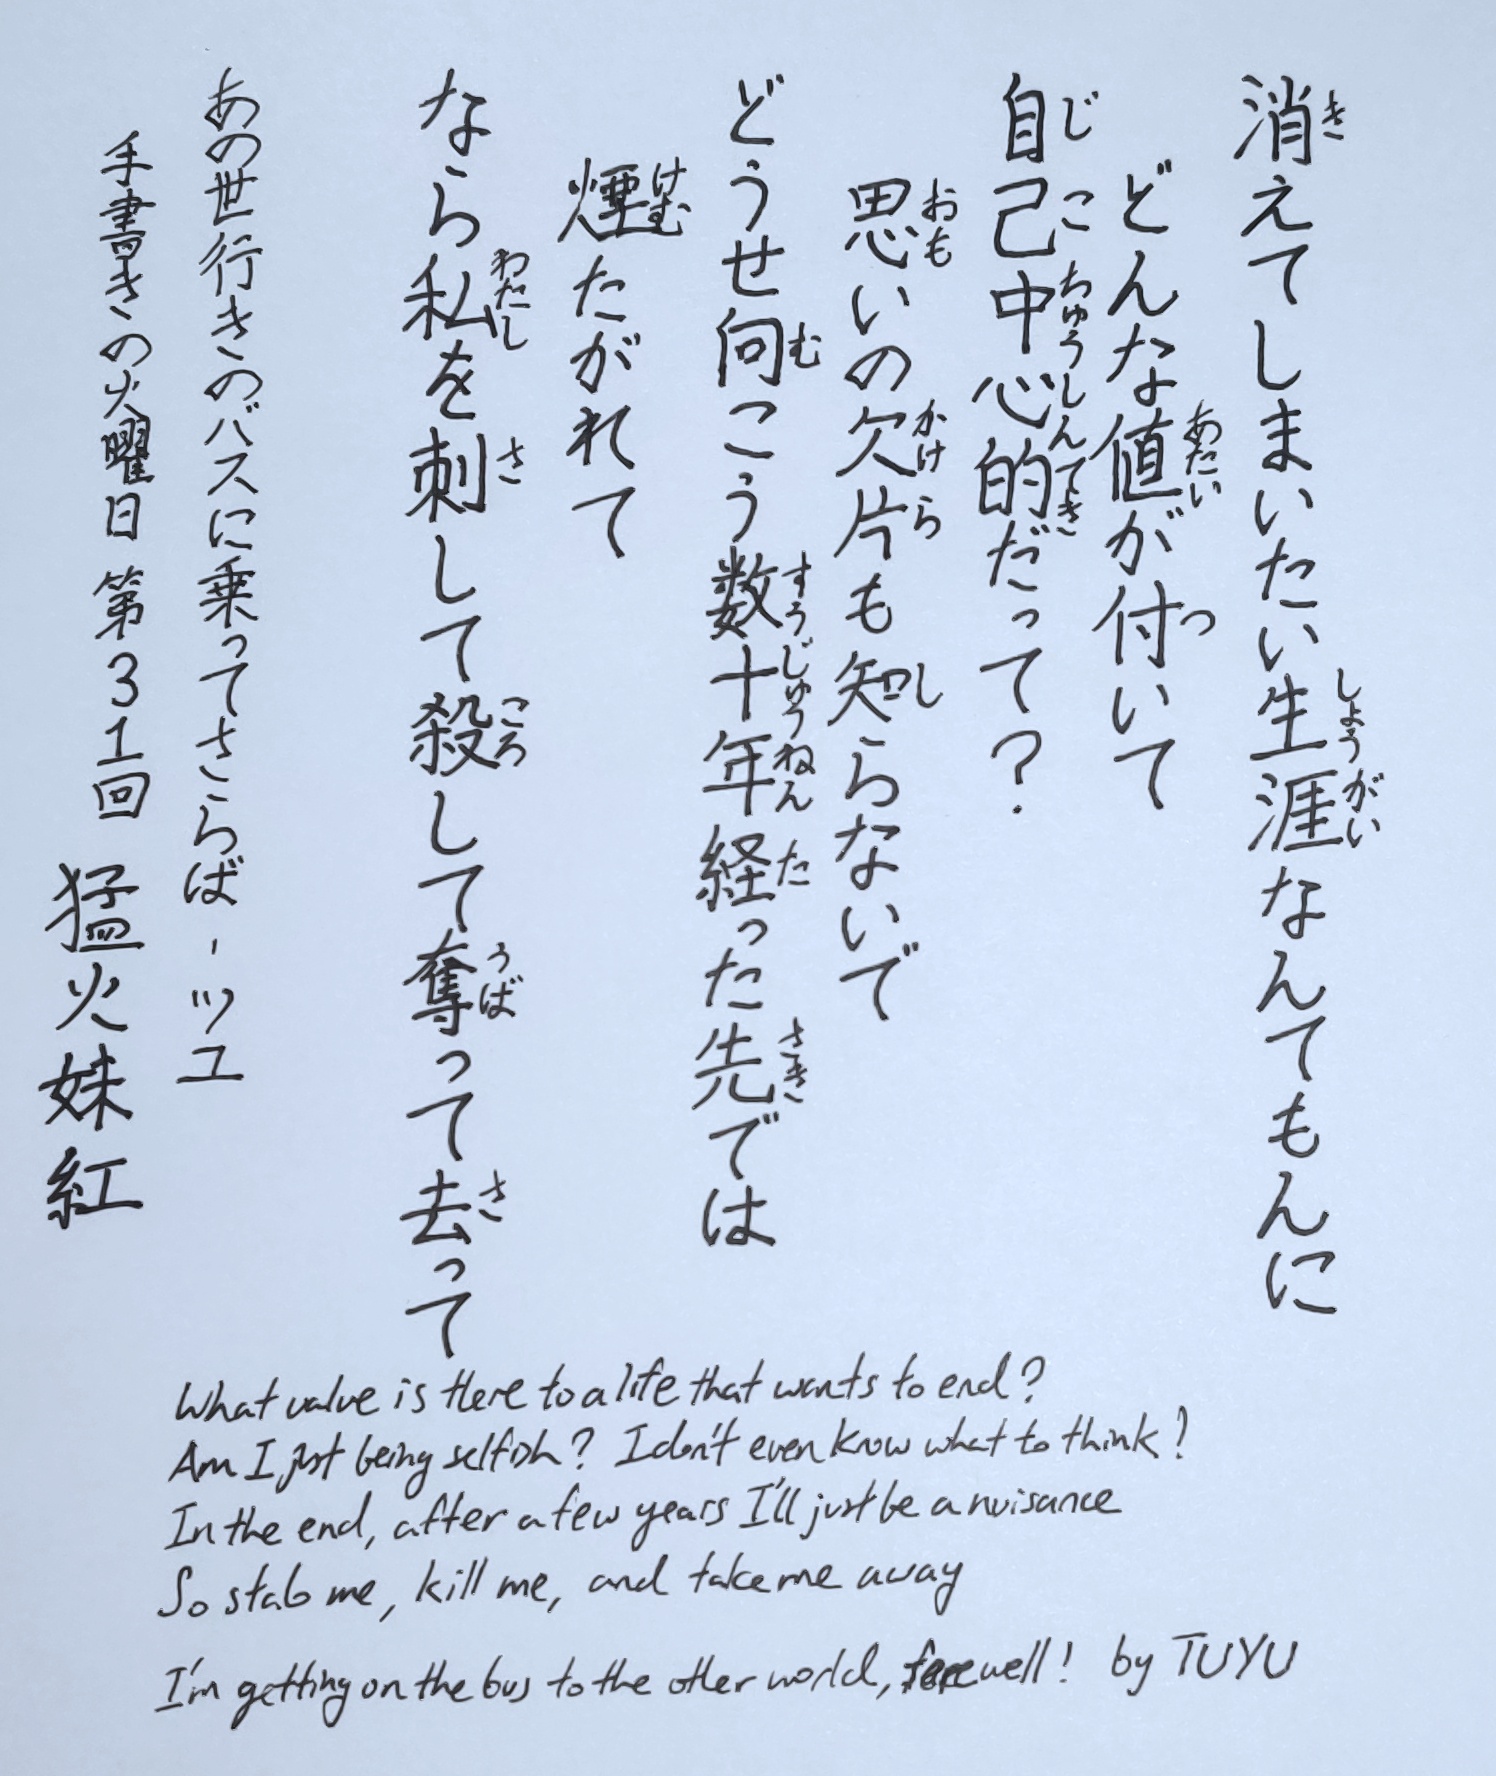 消えてしまいたい生涯なんてもんに
きしょうがい
どんな値が付いて
あたいつ
自己中心的だって?
じこちゅうしんてき
思いの欠片も知らないで
おもかけらし
どうせ向こう数十年経った先では
むすうじゅうねんたさき
煙たがれて
けむ
なら私を刺して殺して奪って去って
わたしさころうばさ
あの世行きのバスに乗ってさらば - ツユ
手書きの火曜日 第31回 猛火妹紅
What value is there to a life that wants to end?
Am I just being selfish? I don't even know what to think!
In the end, after a few years I'll just be a nuisance
So stab me, kill me, and take me away
I'm getting on the bus to the other world, farewell! by TUYU